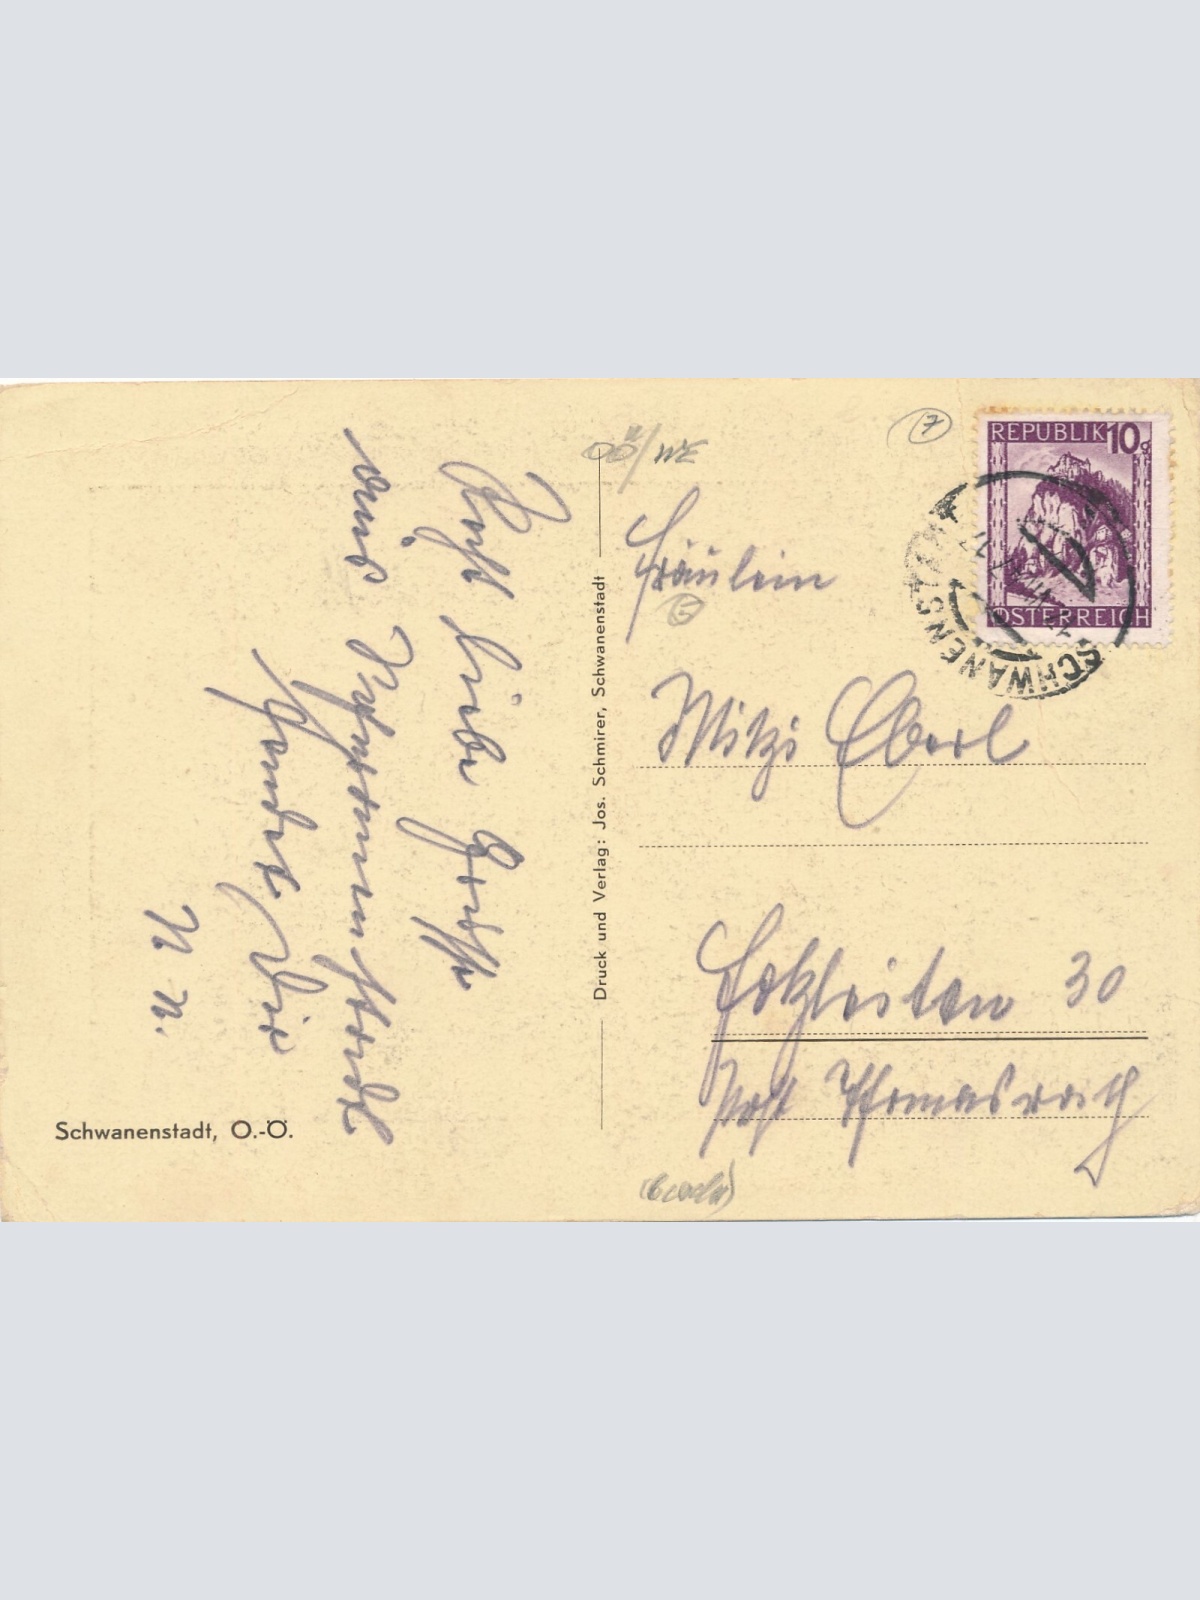 OÖ/WE
7
REPUBLIK 10g
ÖSTERREICH
SCHWANENSTADT
Fräulein
Mitzi Eberl
Holzleiten 30
Post Thomasroith
Recht liebe Grüße
aus Schwanenstadt
sendet Dir
N. N.
Druck und Verlag: Jos. Schmirer, Schwanenstadt
Schwanenstadt, O.-Ö.